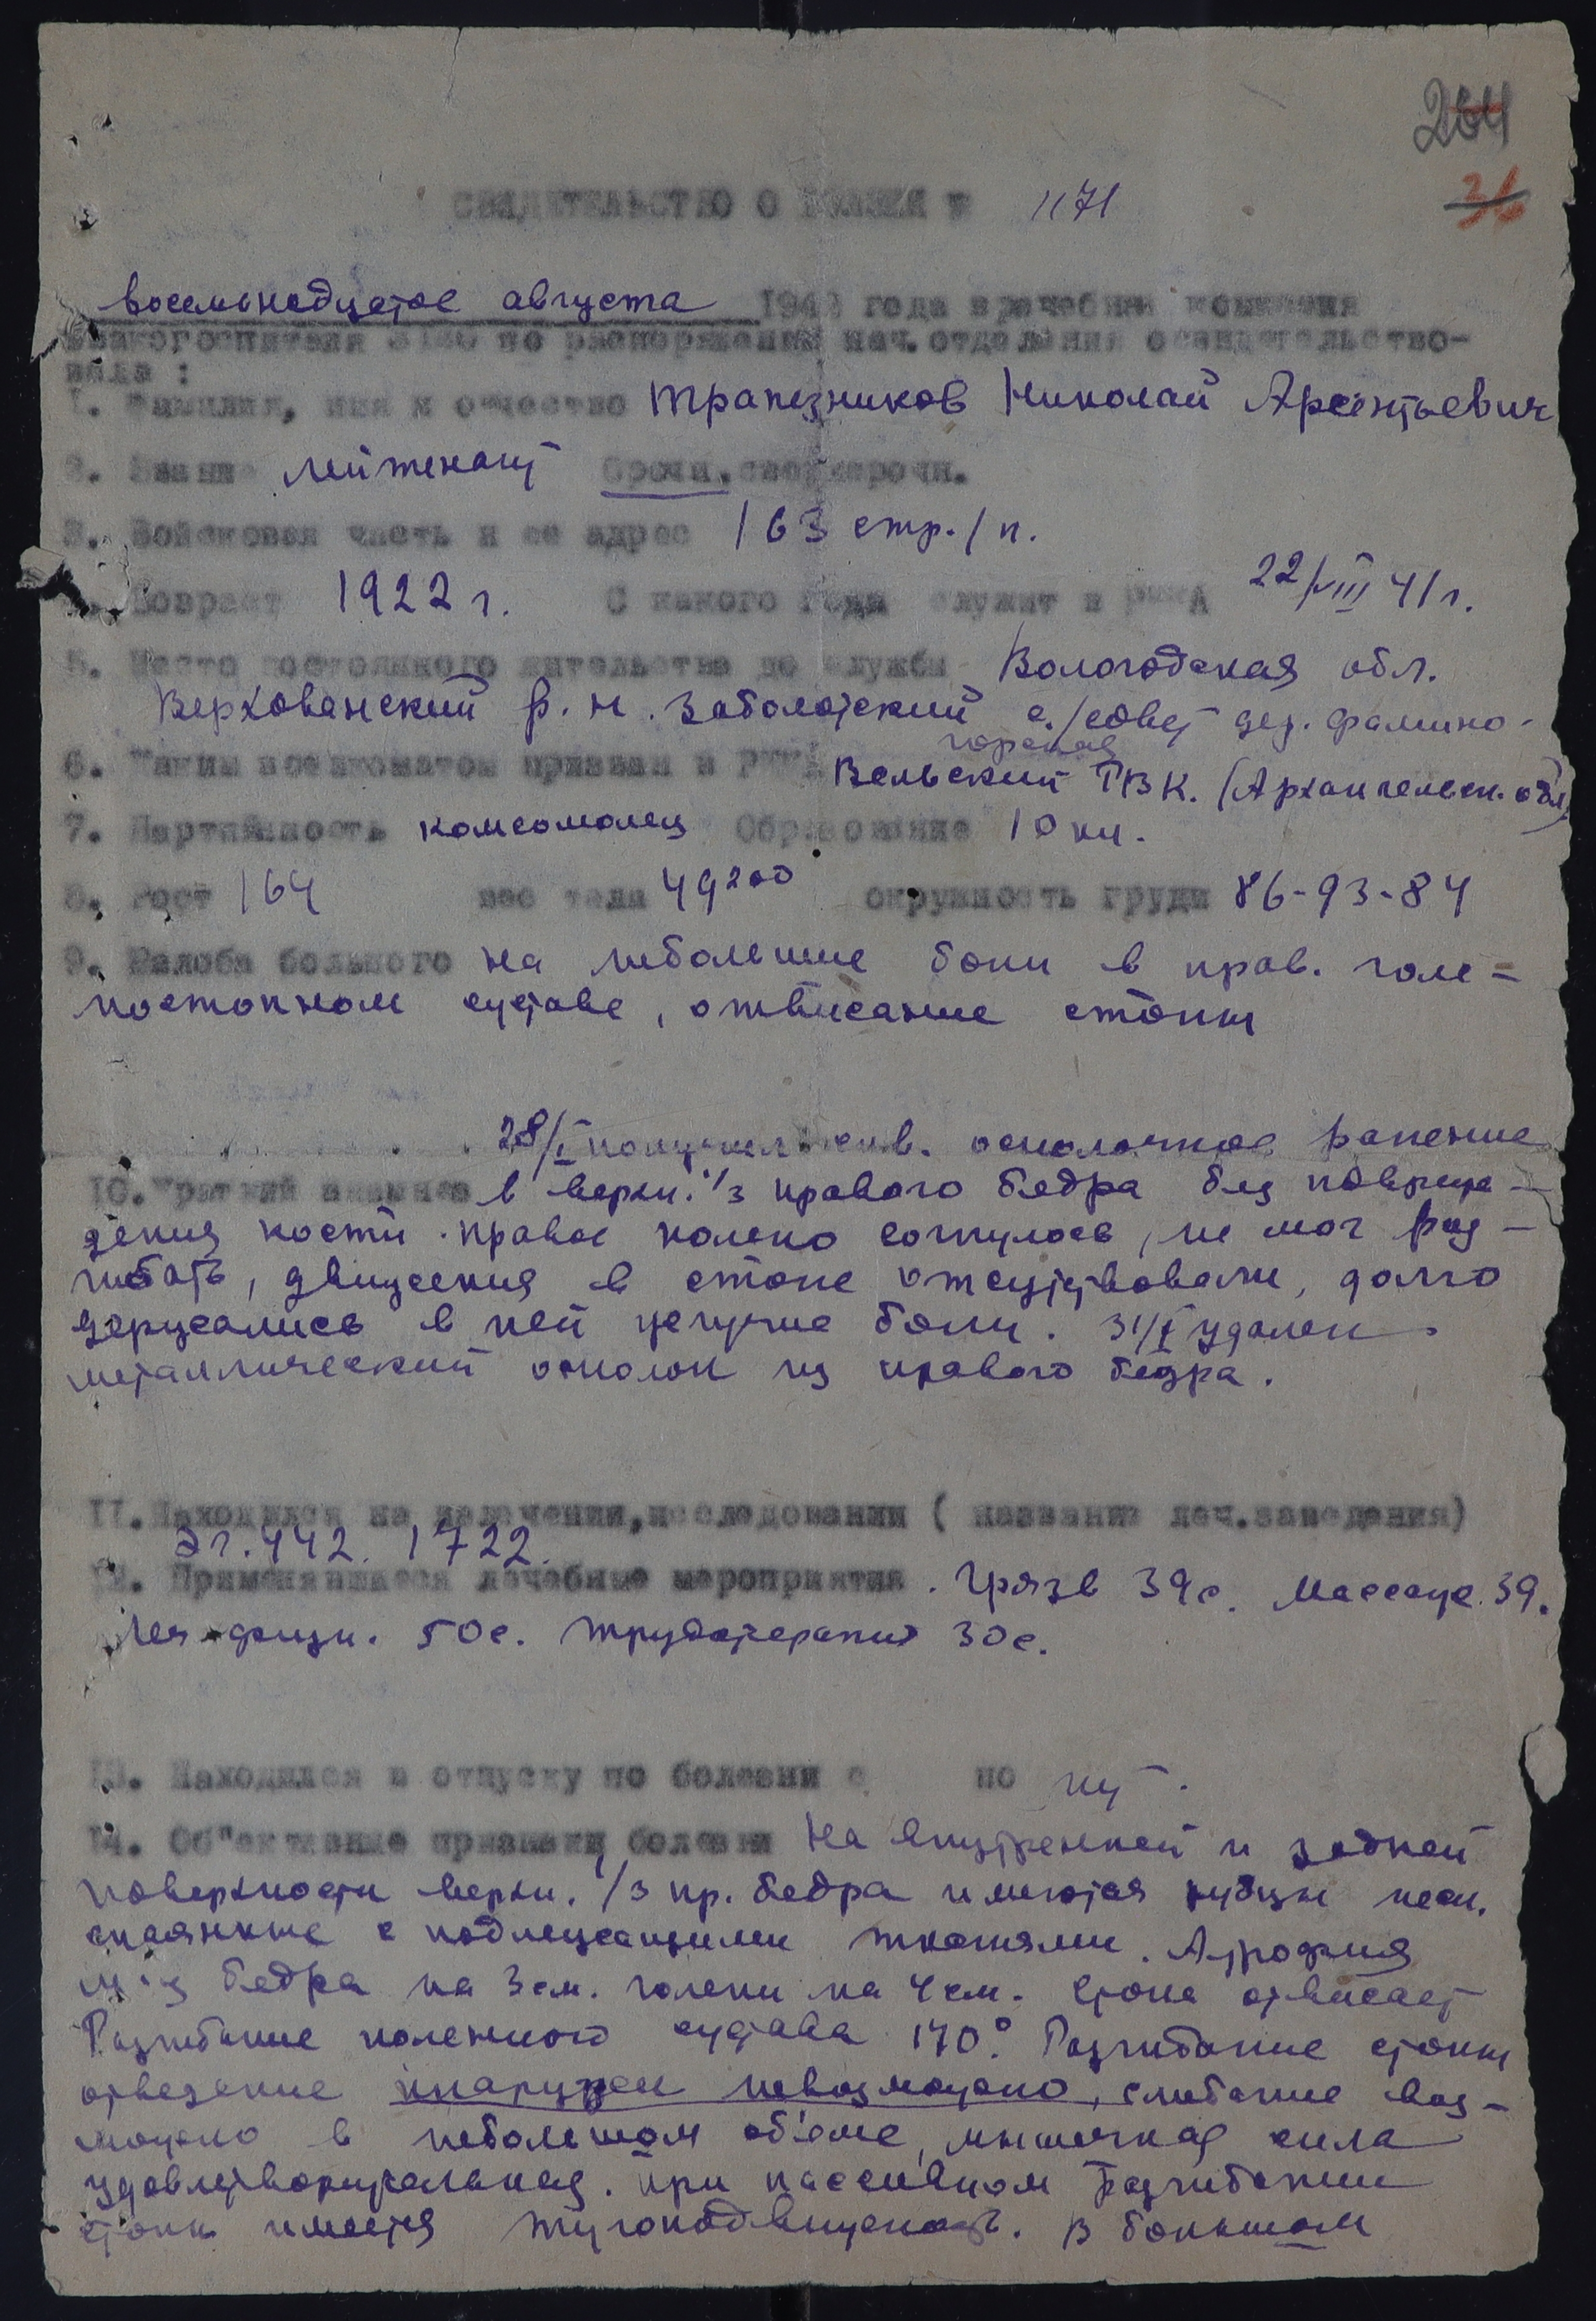 264
31
СВИДЕТЕЛЬСТВО О БОЛЕЗНИ № 1171
восемнадцатое августа 194 года врачебная комиссия
Эвакогоспиталя по распоряжению нач.отделения освидетельство-
вала :
1. Фамилия, имя и отчество Трапезников Николай Арсентьевич
2. Звание лейтенант Срочн.сверхсрочн.
3. Войсковая часть и ее адрес 163 стр./п.
4. Возраст 1922 г. С какого года служит в РККА 22/VIII 41 г.
5. Место постоянного жительства до службы Вологодская обл.
Верховажский р.н. Заболотский с./совет дер. Фамино-
горская
6. Каким военкоматом призван в РККА Вельский РВК. (Архангельск. обл)
7. Партийность комсомолец Образование 10 кл.
8. Рост 164 вес тела 49200 окружность груди 86-93-84
9. Жалоба больного на небольшие боли в прав. голе-
ностопном суставе, отвисание стопы
28/I получил осколочное ранение
10. Краткий анамнез в верхн. 1/3 правого бедра без повреж-
дения кости. правое колено согнулось, не мог раз-
гибать, движения в стопе отсутствовали, долго
держались в ней жгучие боли. 31/I удален
металлический осколок из правого бедра.
11. Находился на излечении, исследовании ( название леч.заведения)
Эг. 442. 1722.
12. Применявшиеся лечебные мероприятия . Грязь 39 с. Массаж. 39.
Леч. физк. 50 с. трудотерапия 30 с.
13. Находился в отпуску по болезни с по нет.
14. Об"ективные признаки болезни На внутренней и задней
поверхности верхн. 1/3 пр. бедра имеются рубцы неск.
спаянные с подлежащими тканями. Атрофия
м-ц бедра на 3 см. голени на 4 см. Стопа отвисает
Разгибание коленного сустава 170°. Разгибание стопы
отведение кнаружи невозможно, сгибание воз-
можно в небольшом об'еме, мышечная сила
удовлетворительная. При пассивном разгибании
стопы имеется тугоподвижность. В большом